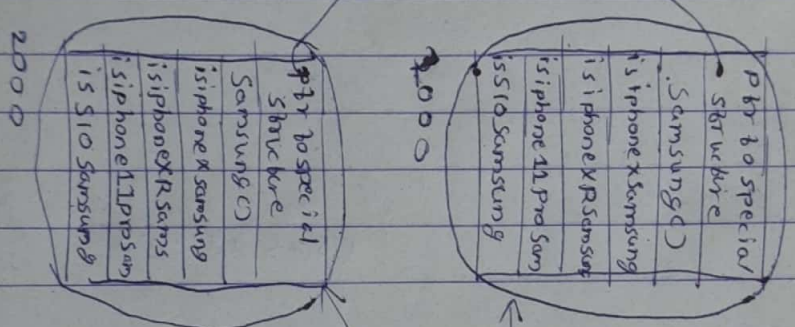 ptr to special
structure
Samsung()
isiphonexsamsung
isiphoneXRsamsun
isiphone11proSam
isS10Samsung
1000
ptr to special
structure
Samsung()
isiphonexsamsung
isiphoneXRsams
isiphone11proSam
isS10Samsung
2000